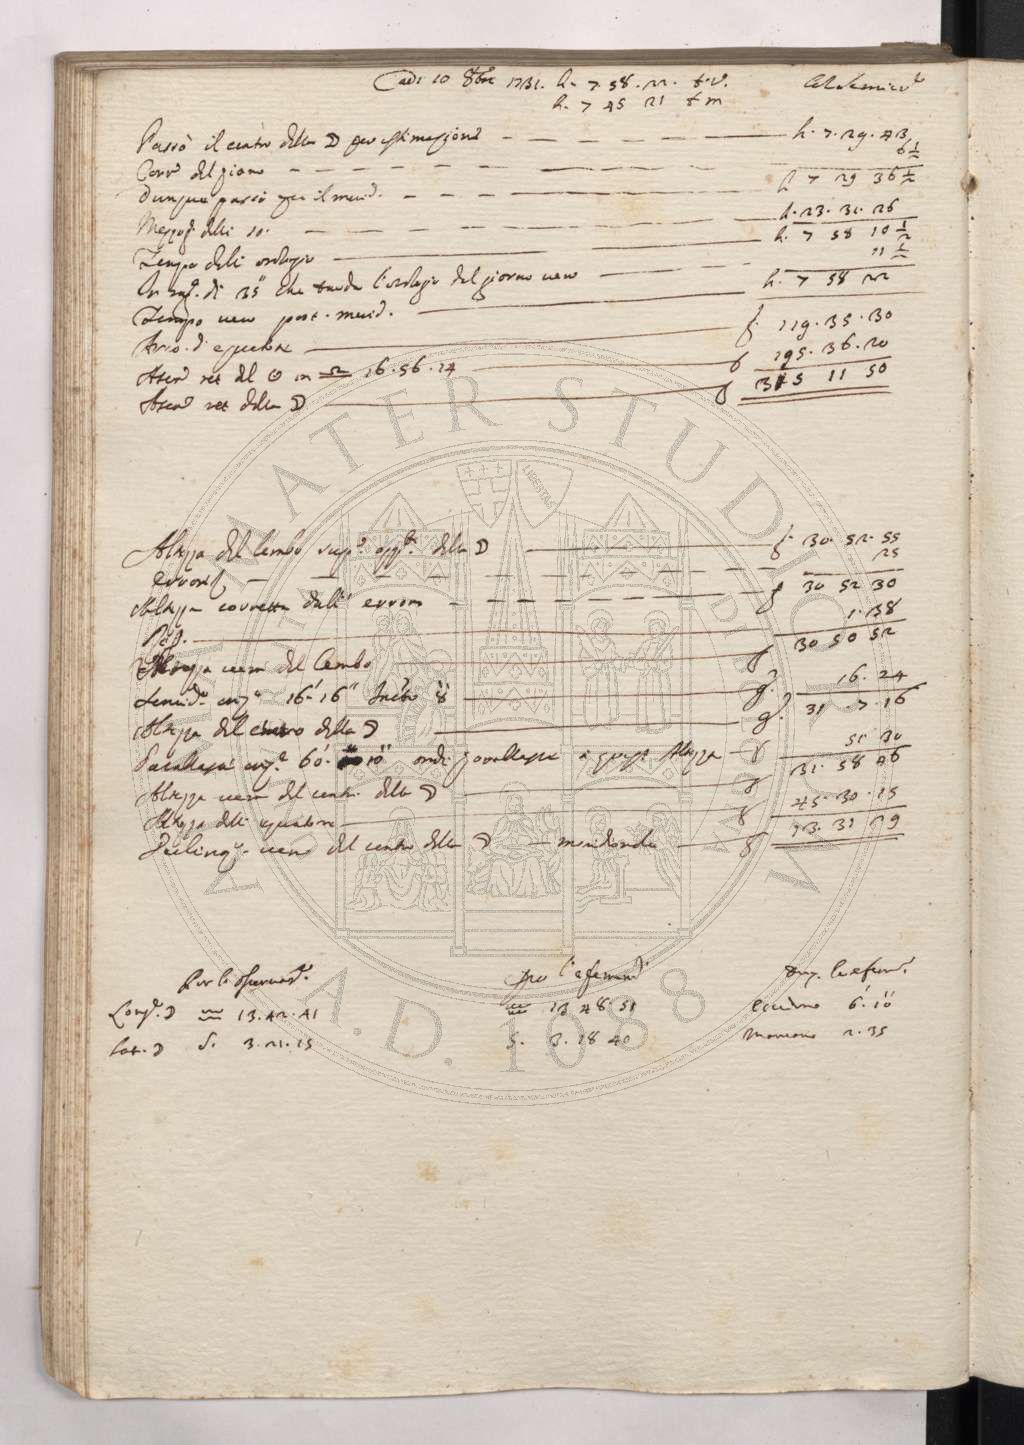 Adi 10 8bre 1731. h. 7. 58. 22. t.v.
h. 7 45 21 t m
Passò il centro della ☽ per estimazione h. 7. 29. 43
Corr.e del piano 6 1/2
Dunque passò per il merid. h 7 29 36 1/2
Mezzog. delli 10. h. 23. 31. 26
Tempo dell' orologio h. 7 58 10 1/2
di 35" che tarda l'orologio del giorno vero 11 1/2
Tempo vero post. merid. h. 7 58 22
Arco d'equatore g. 119. 35. 30
Asen. ret del ☉ in ♎ 16. 56. 14 g 195. 36. 20
Asen. ret della ☽ g 315 11 50
Altezza del lembo sup.e app.te della ☽ g. 30. 52. 55
errore 25
Altezza corretta dall' errore g 30 52 30
Rif. 1. 38
Altezza vera del lembo g 30 50 52
Semid.o 16' 16" 8" g. 16. 24
Altezza del centro della ☽ g. 31. 7. 16
Parallasse 60' 10" onde parallasse a questa altezza g 51 30
Altezza vera del centro della ☽ g 31. 58 46
Altezza dell' equatore g 45. 30. 15
Declinaz.e vera del centro della ☽ meridionale g 13. 31 29
Per le osservaz.i Per l'efemeridi
Long. ☽ ♒ 13. 42. 41 ♒ 13 48. 51 eccedono 6' 10"
Lat. ☽ S. 3. 21. 15 S. 3. 18 40 mancano 2. 35
ALMA MATER STUDIORUM
A.D. 1088
LIBERTAS